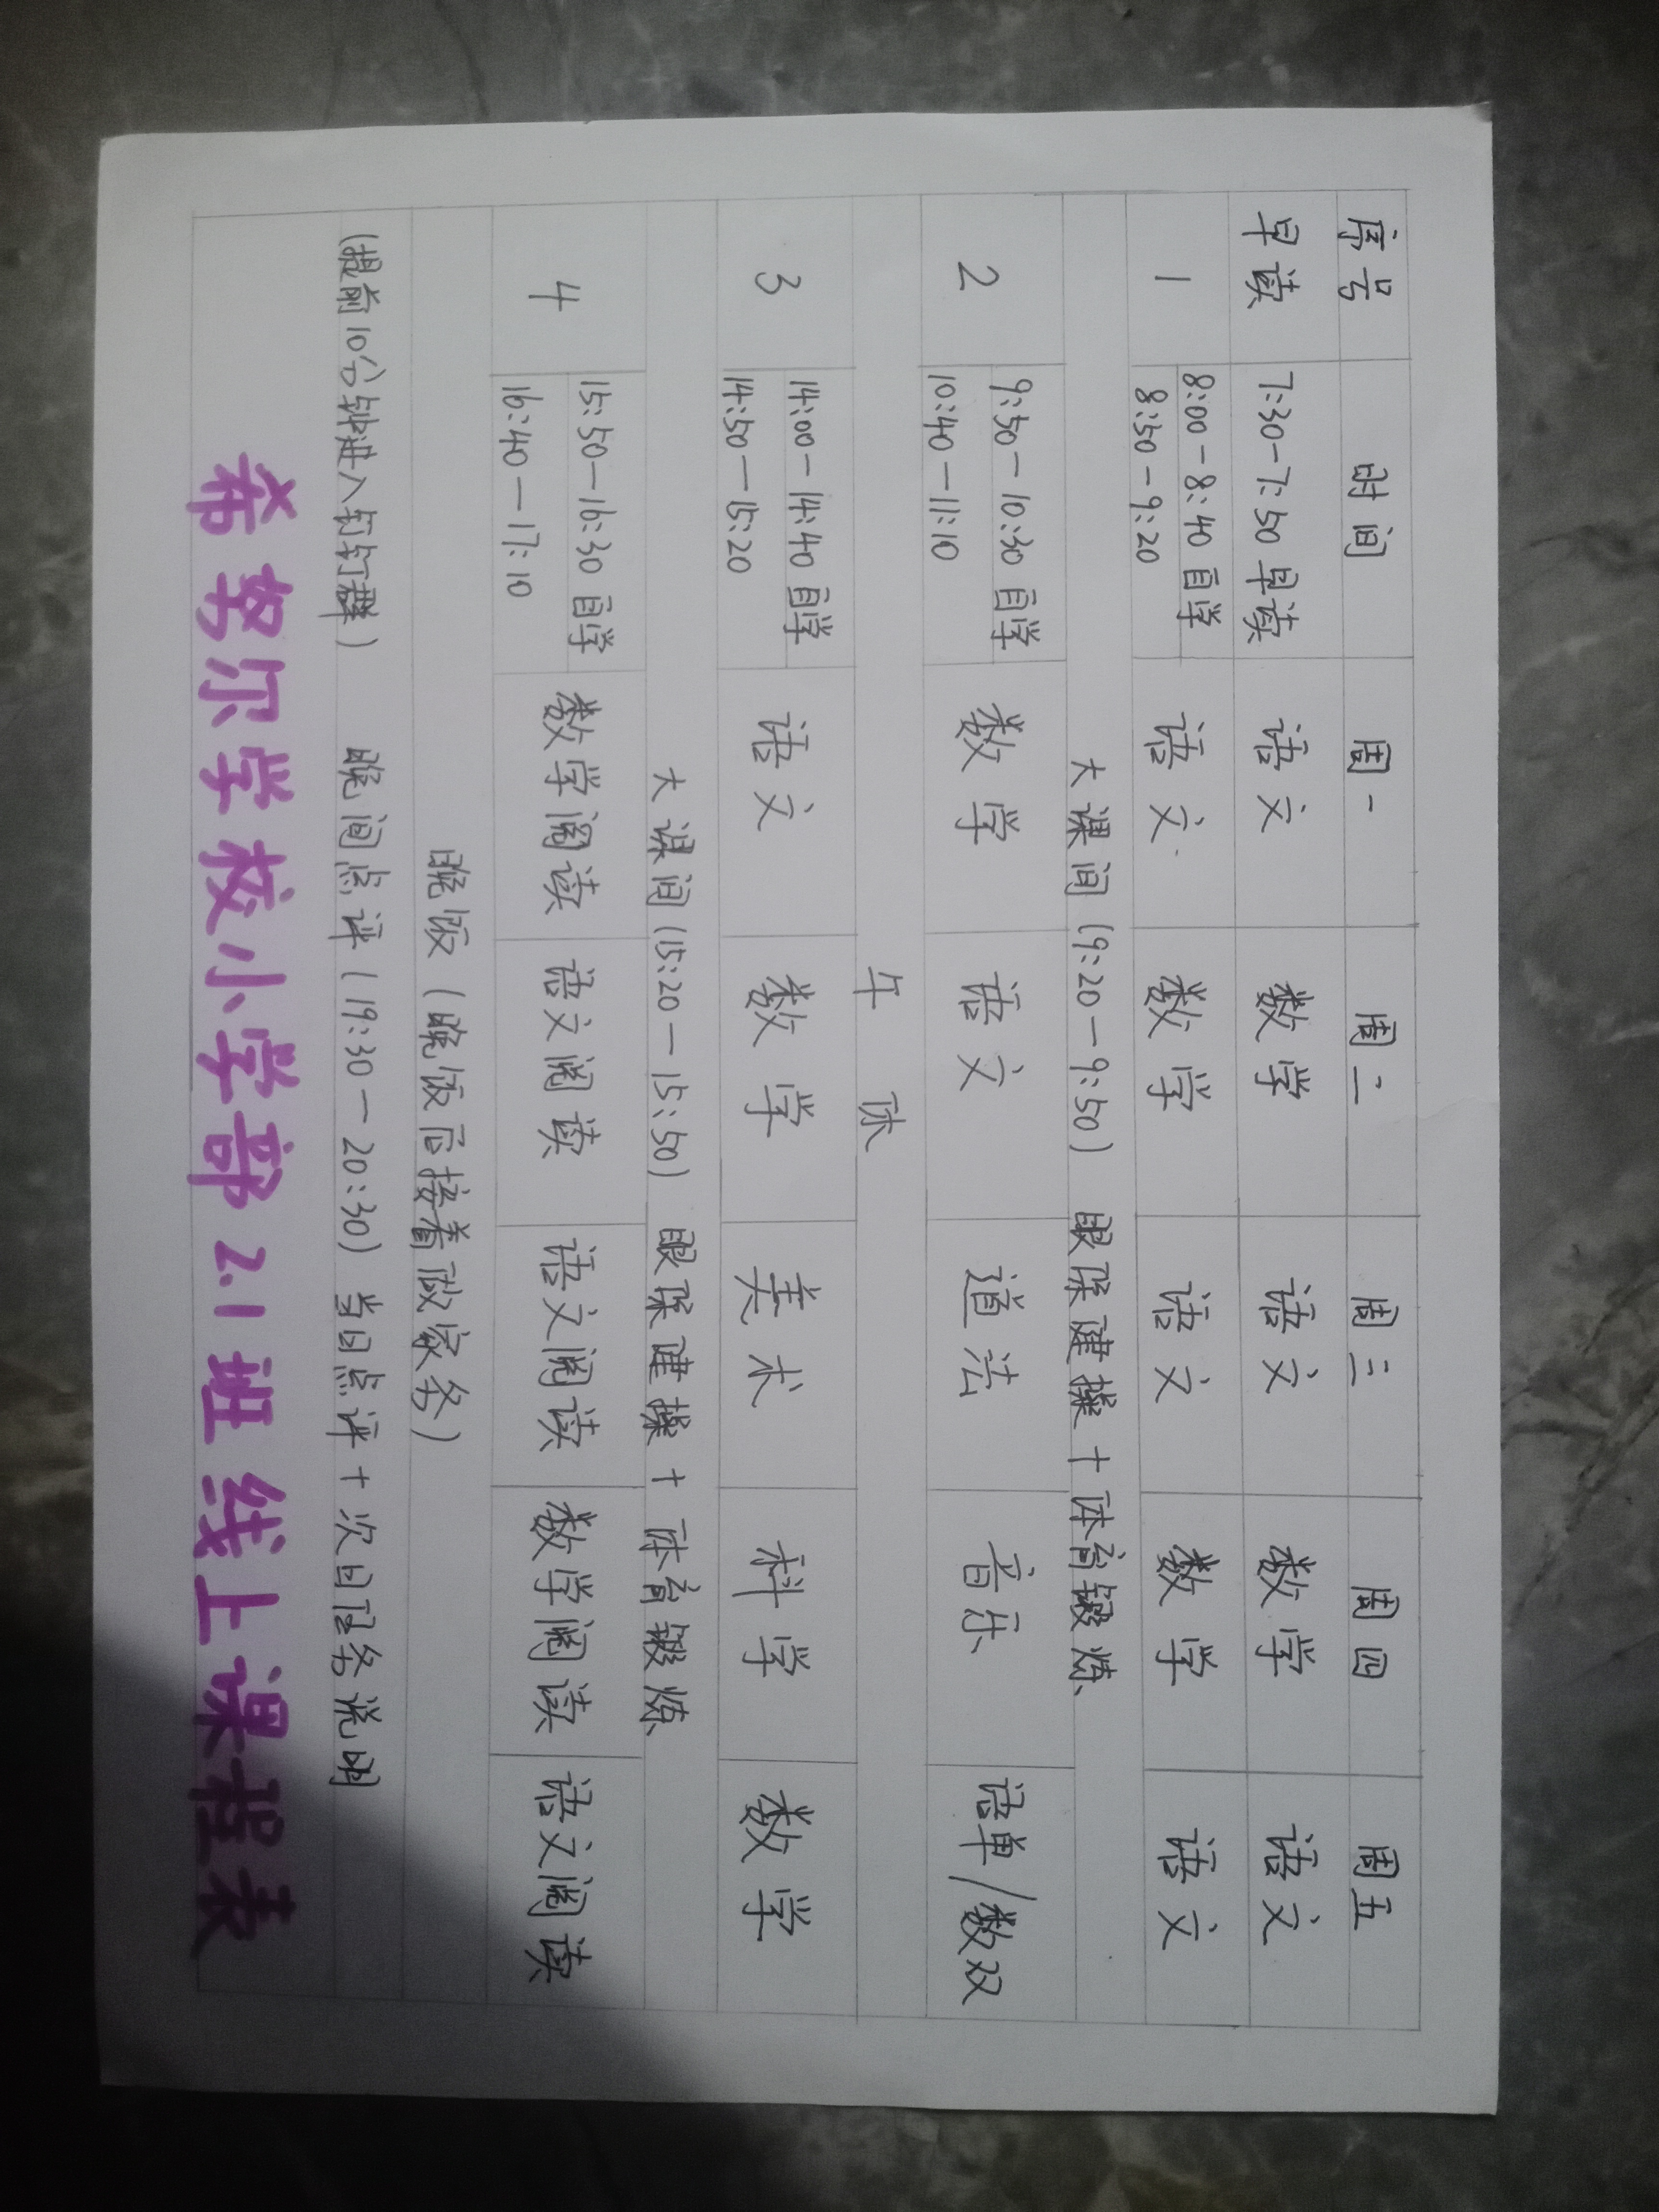 序号 时间 周一 周二 周三 周四 周五
早读 7:30-7:50 早读 语文 数学 语文 数学 语文
1 8:00-8:40 自学 语文 数学 语文 数学 语文
8:50-9:20
大课间 (9:20—9:50) 眼保健操 + 体育锻炼
2 9:50—10:30 自学 数学 语文 道法 音乐 语单/数双
10:40—11:10
午休
3 14:00—14:40 自学 语文 数学 美术 科学 数学
14:50—15:20
大课间 (15:20—15:50) 眼保健操 + 体育锻炼
4 15:50—16:30 自学 数学阅读 语文阅读 语文阅读 数学阅读 语文阅读
16:40—17:10
晚饭 (晚饭后接着做家务)
(提前10分钟进入钉钉群) 晚间点评 (19:30—20:30) 当日点评 + 次日任务说明
希努尔学校小学部 2.1 班线上课程表